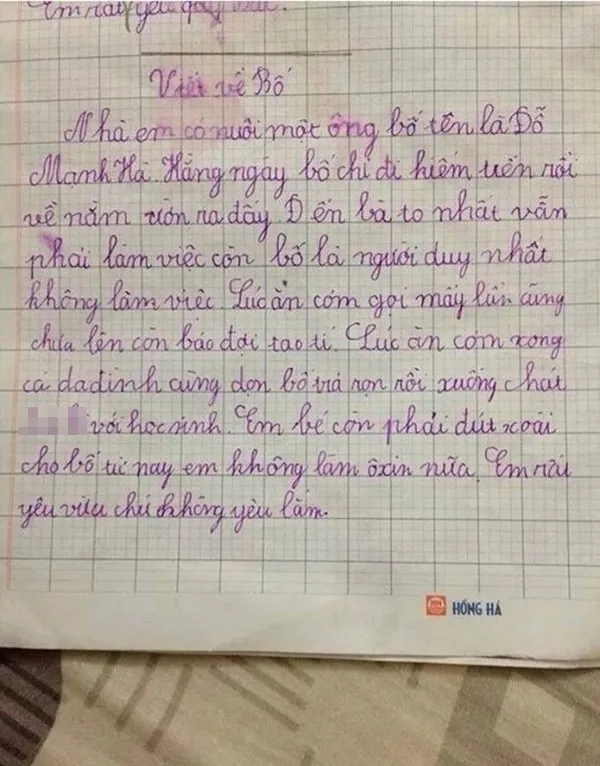 Em rất yêu
Viết về Bố
Nhà em có nuôi một ông bố tên là Đỗ
Mạnh Hà. Hằng ngày bố chỉ đi hiếm uền rồi
về nằm ườn ra đấy. Đến bà to nhất vẫn
phải làm việc còn bố là người duy nhất
không làm việc. Lúc ăn cơm gọi mấy lần cũng
chưa lên còn bảo đợi tao tí. Lúc ăn cơm xong
cả da đình cùng dọn bố trả rọn rồi xuống chát
với học sinh. Em bé còn phải đút xoài
cho bố từ nay em không làm ôxin nữa. Em rất
yêu vừa chứ không yêu lắm.
HH HỒNG HÀ